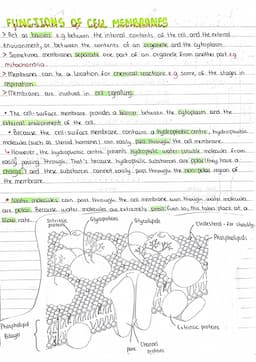 FUNCTIONS OF CELL MEMBRANES
> Act as barriers e.g between the internal contents of the cell and the external
environment, or between the contents of an organelle and the cytoplasm.
> Sometimes membranes separate one part of an organelle from another part e.g
mitochondria.
> Membranes can be a location for chemical reactions e.g some of the stages in
respiration.
> Membranes are involved in cell signalling.
• The cell surface membrane provides a barrier between the cytoplasm and the
external environment of the cell.
• Because the cell surface membrane contains a hydrophobic centre, hydrophobic
molecules (such as steroid hormones) can easily pass through the cell membrane.
↳ However, the hydrophobic centre prevents hydrophilic water-soluble molecules from
easily passing through. That's because hydrophilic substances are polar (they have a
charge) and these substances cannot easily pass through the non-polar region of
the membrane.
• Water molecules can pass through the cell membrane even though water molecules
are polar. Because water molecules are extremely small. Even so, this takes place at a
slow rate.
Intrinsic
proteins
Glycoproteins
Glycolipids
Cholesterol - for stability
Phospholipids
Phospholipid
Bilayer
Extrinsic proteins
pore
Channel
proteins